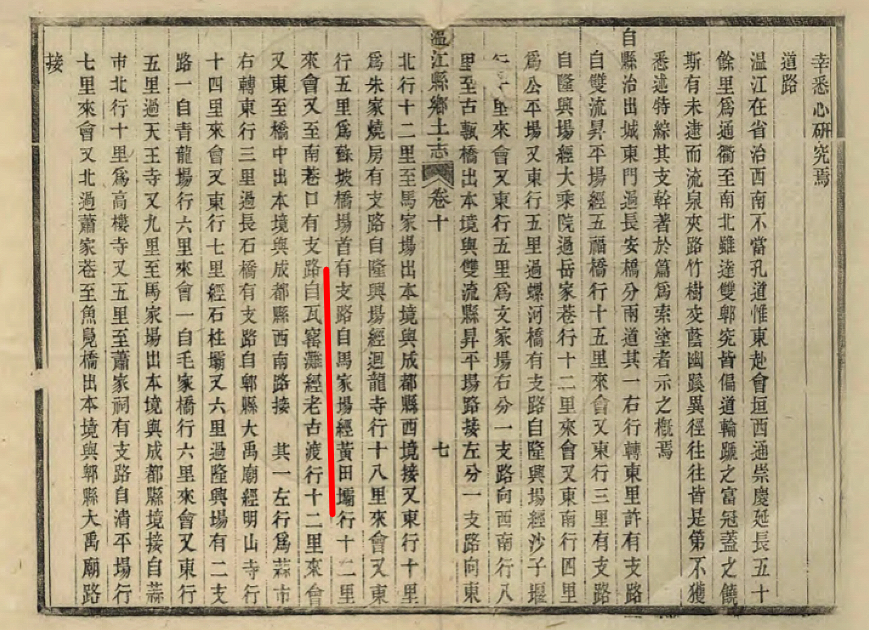 幸悉心研究焉
道路
溫江在省治西南不當孔道惟東赴會垣西通崇慶延長五十
餘里爲通衢至南北雖達雙郫究皆偏道輪蹏之富冠蓋之饒
斯有未逮而流泉夾路竹樹交蔭幽蹊異徑往往皆是第不獲
悉述特綜其支幹著於篇爲索塗者示之概焉
自縣治出城東門過長安橋分兩道其一右行轉東里許有支路
自雙流昇平場經五福橋行十五里來會又東行三里有支路
自隆興場經大乘院過岳家巷行十二里來會又東南行四里
爲公平場又東行五里過螺河橋有支路自隆興場經沙子堰
行十里來會又東行五里爲文家場右分一支路向西南行八
里至古瓡橋出本境與雙流縣昇平場路接左分一支路向東
溫江縣鄉土志 卷十 七
北行十二里至馬家場出本境與成都縣西境接又東行十里
爲朱家燒房有支路自隆興場經迴龍寺行十八里來會又東
行五里爲蘇坡橋場首有支路自馬家場經黃田壩行十二里
來會又至南巷口有支路自瓦窰灘經老古渡行十二里來會
又東至橋中出本境與成都縣西南路接 其一左行爲蒜市
右轉東行三里過長石橋有支路自郫縣大禹廟經明山寺行
十四里來會又東行七里經石柱壩又六里過隆興場有二支
路一自青龍場行六里來會一自毛家橋行六里來會又東行
五里過天王寺又九里至馬家場出本境與成都縣境接自蒜
市北行十里爲高樓寺又五里至蕭家祠有支路自清平場行
七里來會又北過蕭家巷至魚鳧橋出本境與郫縣大禹廟路
接